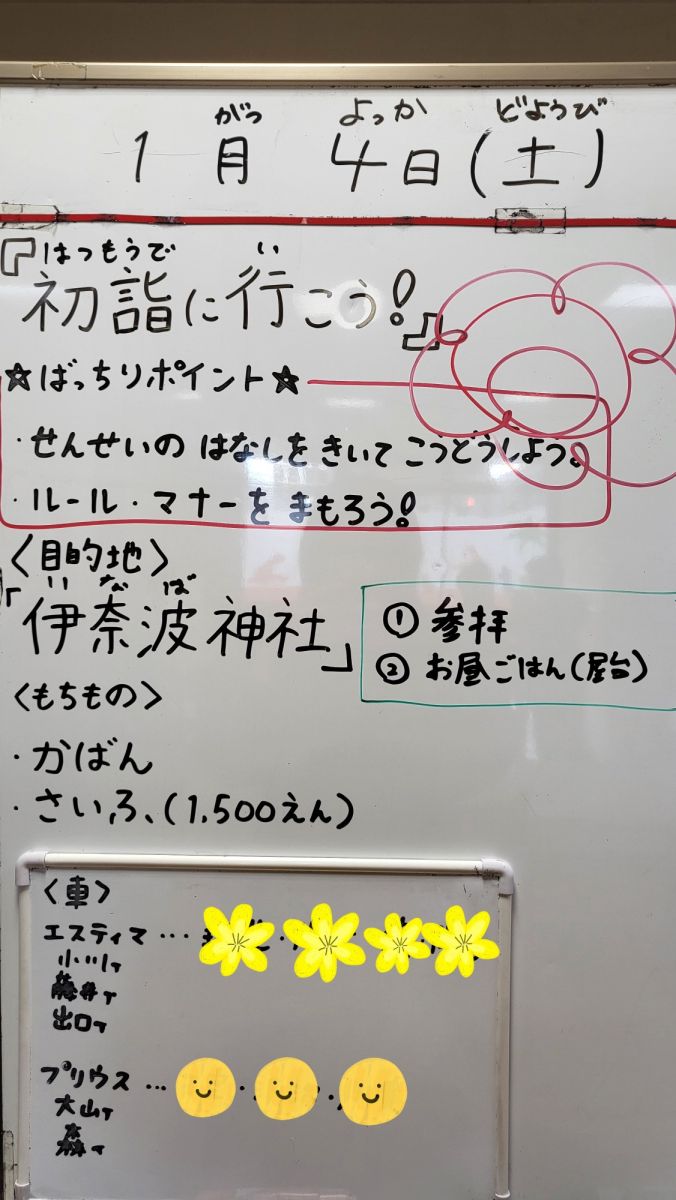 がつ よっか どようび
1月 4日(土)
はつもうで い
『初詣に行こう!』
☆ばっちりポイント☆
・せんせいの はなしを きいて こうどうしよう。
・ルール・マナーを まもろう!
〈目的地〉
いなば
「伊奈波神社」
① 参拝
② お昼ごはん(屋台)
〈もちもの〉
・かばん
・さいふ、(1,500えん)
〈車〉
エスティマ…
小川T
藤井T
出口T
プリウス…
大山T
森T